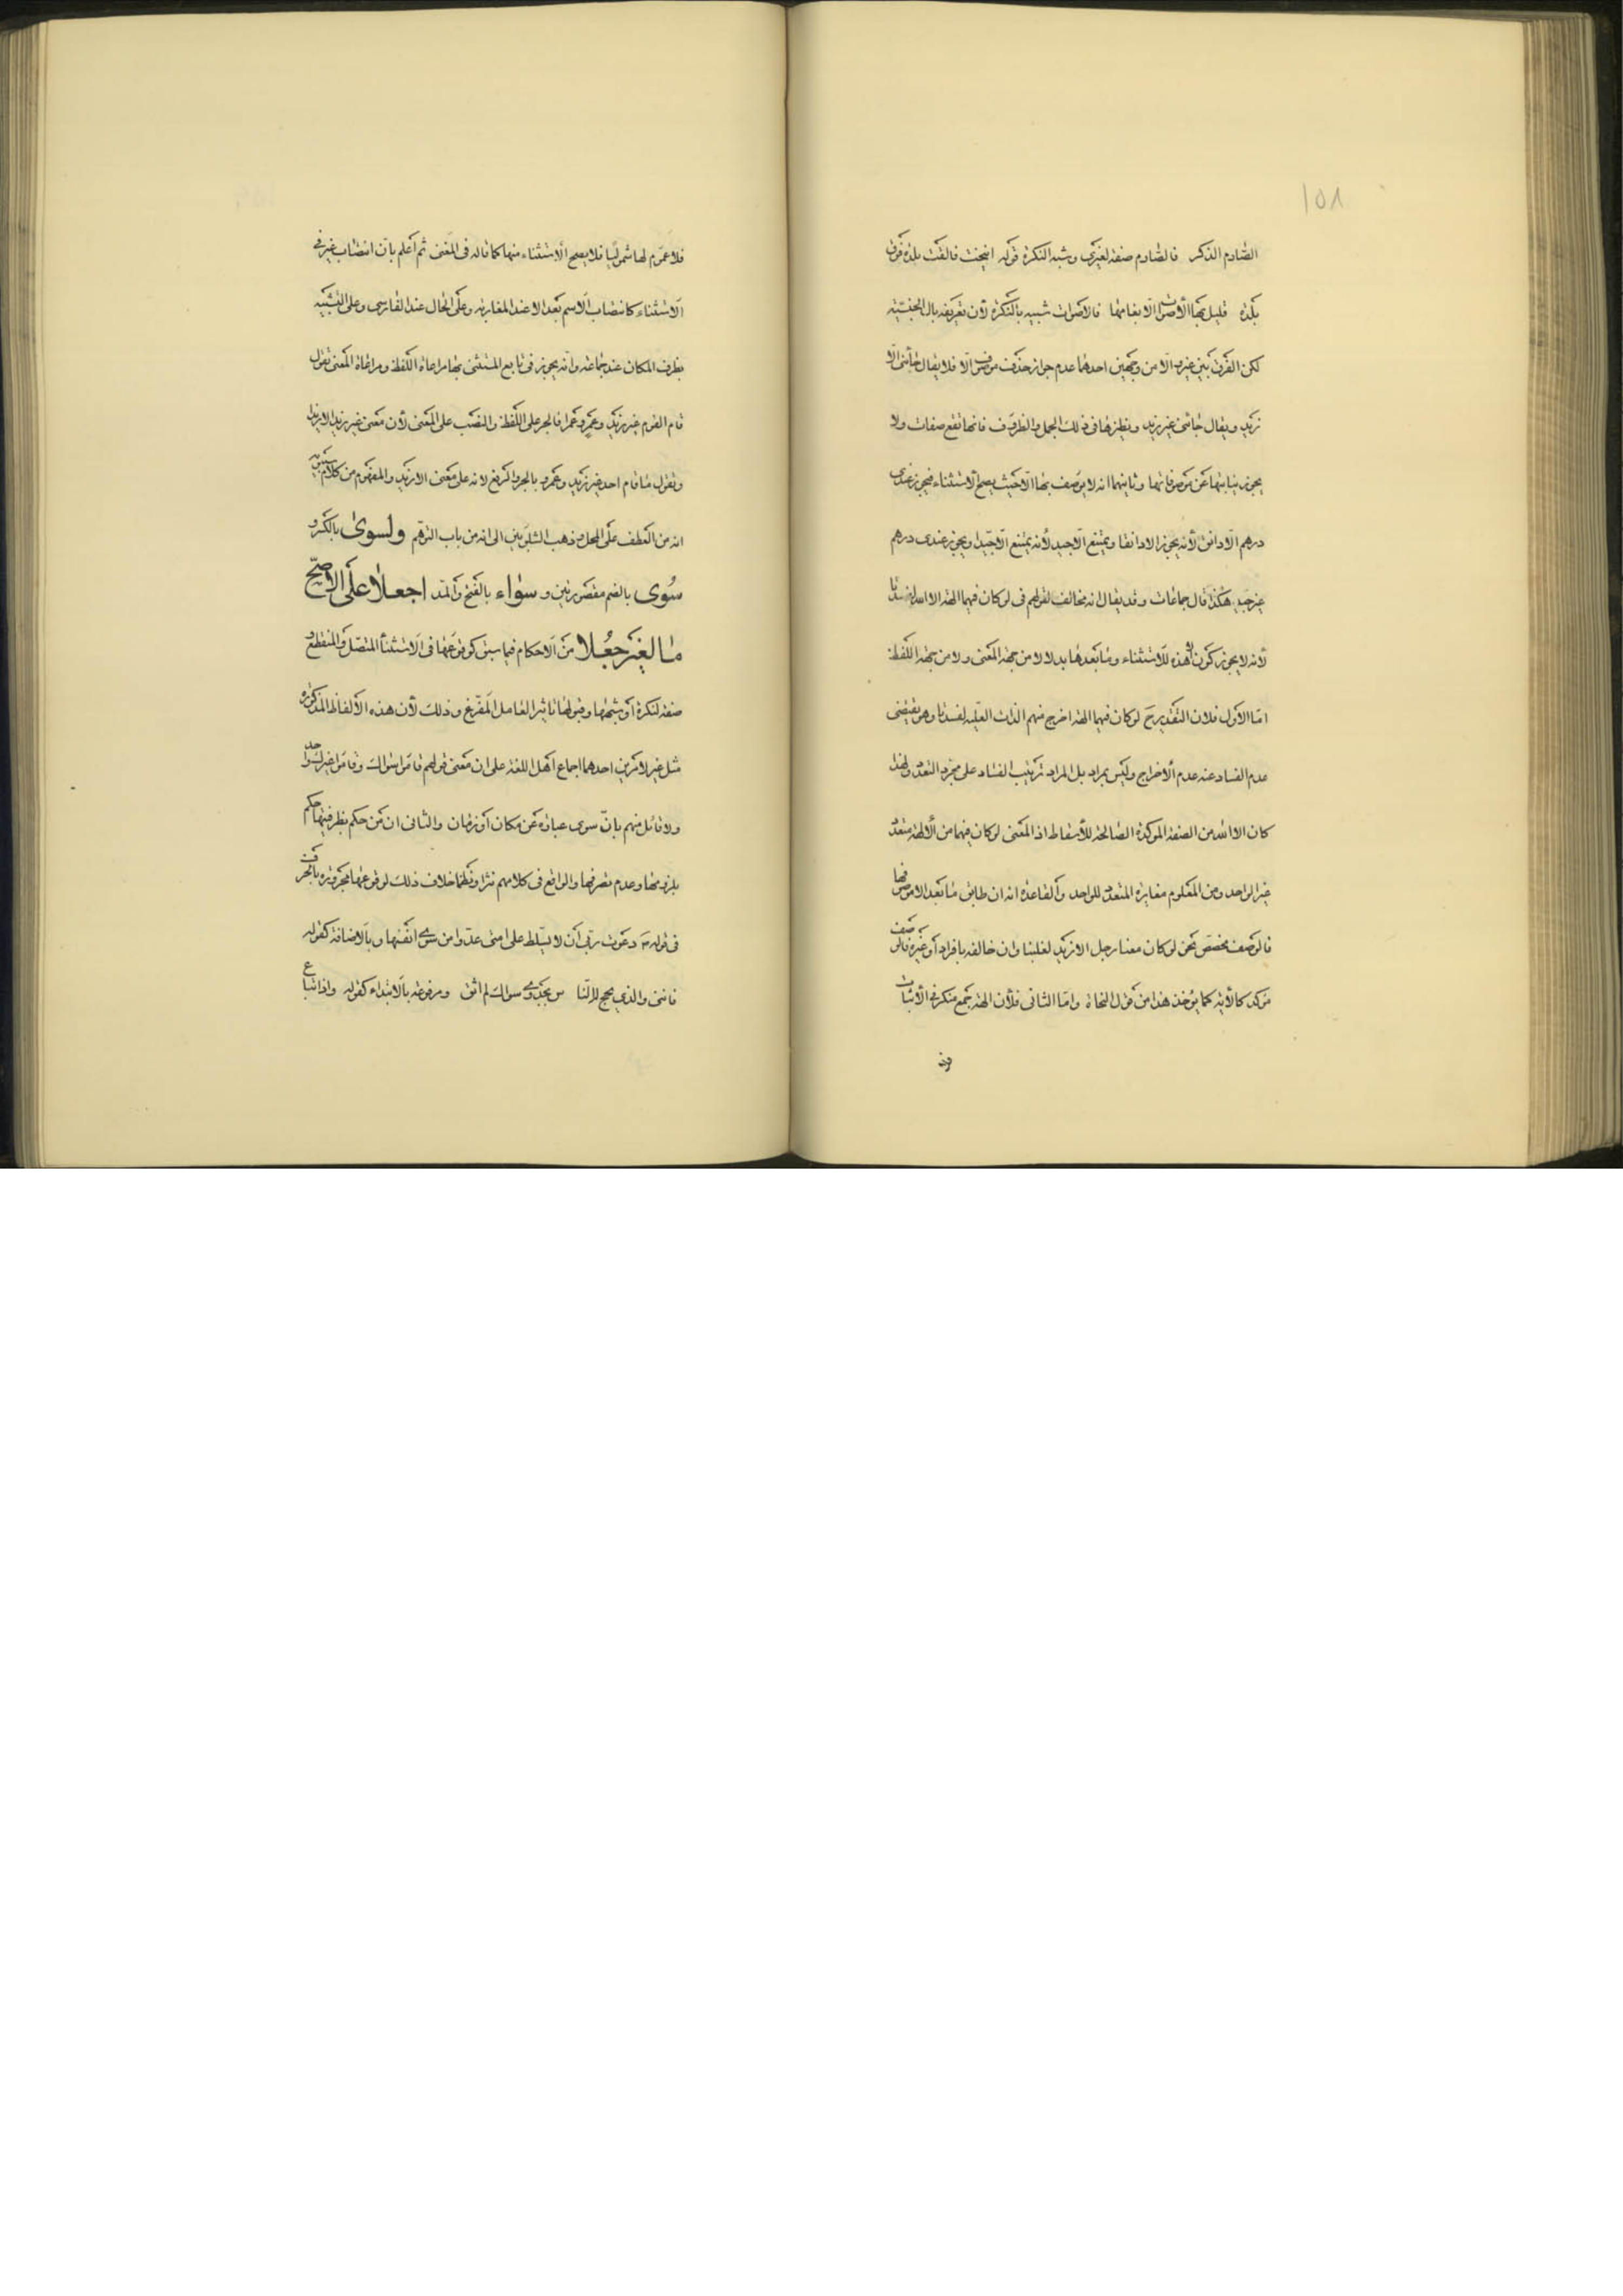 ١٥٨
الصّارم الذكر فالصّارم صفة لغيرى وشبه النكرة قوله انيخت فالقت بلدة فوق
بلدة قليل بها الأصوات الا بغامها فالاصوات شبيه بالنكرة لأن تعريفه بال الجنسيّة
لكن الفرق بين غير و الّا من وجهين احدهما عدم جواز حذف موصوف الّا فلا يقال جائنى الّا
زيد ويقال جائنى غير زيد ونظيرها فى ذلك الجمل والظروف فانها تقع صفات ولا
يجوز نيابتها عن موصوفاتها وثانيهما انه لا يوصف بها الّا حيث يصح الأستثناء فيجوز عندى
درهم الّا دانق لأنه يجوز الا دانقا ويمتنع الّا جيد لأنه يمتنع الّا جيّدا ويجوز عندى درهم
غير جيد هكذا قال جماعات وقد يقال انه مخالف لقولهم فى لو كان فيهما الهة الا الله لفسدتا
لأنه لا يجوز كون الا هذه للاستثناء وما بعدها بدلا لا من جهة المعنى ولا من جهة اللفظ
امّا الأول فلان التقدير ح لو كان فيهما الهة اخرج منهم الذات العليه لفسدتا وهو يقتضى
عدم الفساد عنه عدم الأخراج وليس بمراد بل المراد ترتيب الفساد على مجرد التعدد ولهذا
كان الا الله من الصفة الموكدة الصالحة للأسقاط اذ المعنى لو كان فيهما من ألالهة متعدد
غير الواحد ومن المعلوم مغايرة المتعدد للواحد والقاعدة انه ان طابق ما بعد الا موصوفها
فالوصف مخصّص نحو لو كان معنا رجل الا زيد لغلبنا وان خالفه بافراد أو غيره فالوصف
موكد كالأية كما يؤخذ هذا من قول النحاة وامّا الثانى فلأن الهة جمع منكر فى الأثبات
فلا عموم لها شموليّا فلا يصح الأستثناء منها كما قاله فى المغنى ثم أعلم بانّ انتصاب غير فى
الأستثناء كانتصاب الاسم بعد الا عند المغاربة وعلى الحال عند الفارسى وعلى التشبيه
بظرف المكان عند جماعة وانّه يجوز فى تابع المستثنى بها مراعاة اللفظ ومراعاة المعنى تقول
قام القوم غير زيد وعمرو وعمرا فالجر على اللفظ والنصب على المعنى لأن معنى غير زيد الا زيدا
وتقول ما قام احد غير زيد وعمرو بالجر والرفع لانه على معنى الا زيد والمفهوم من كلام سيبويه
انه من العطف على المحل وذهب الشلوبين الى انه من باب التوهم ولسوى بالكسر و
سُوى بالضم مقصورتين و سواء بالفتح والمد اجعلا على الاصحّ
ما لغير جُعلا من الاحكام فيما سبق كوقوعها فى الاستثنأ المتصّل والمنقطع و
صفة لنكرة أو شبهها وقبولها تاثير العامل المفرّغ وذلك لأن هذه الألفاظ المذكورة
مثل غير لامرين احدهما اجماع أهل اللغة على ان معنى قولهم قاموا سواك وقاموا غيرك واحد
ولا قائل منهم بانّ سوى عبارة عن مكان أو زمان والثانى ان من حكم بظرفيتها حكم
بلزومها وعدم تصرفها والواقع فى كلامهم نثرا ونظما خلاف ذلك لوقوعها مجرورة بالحرف
فى قوله دعوت ربّى أن لا يسّلط على امتى عدّوا من سوى انفسها وبالاضافة كقوله
فاننى والذى يحج له النّا س بجدوى سواك لم اثق ومرفوعة بالابتداء كقوله واذا تباع